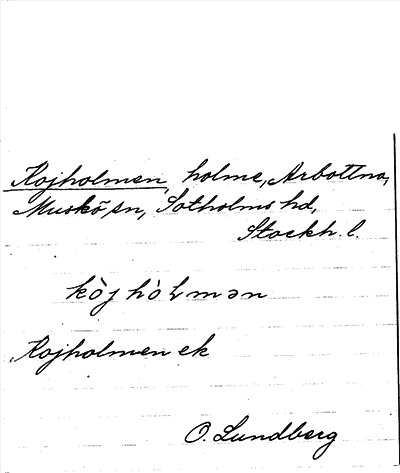 Kojholmen, holme, Arbottna,
Muskö sn, Sotholms hd,
Stockh. l.
kòj hòⱡmən
Kojholmen ek
O. Lundberg